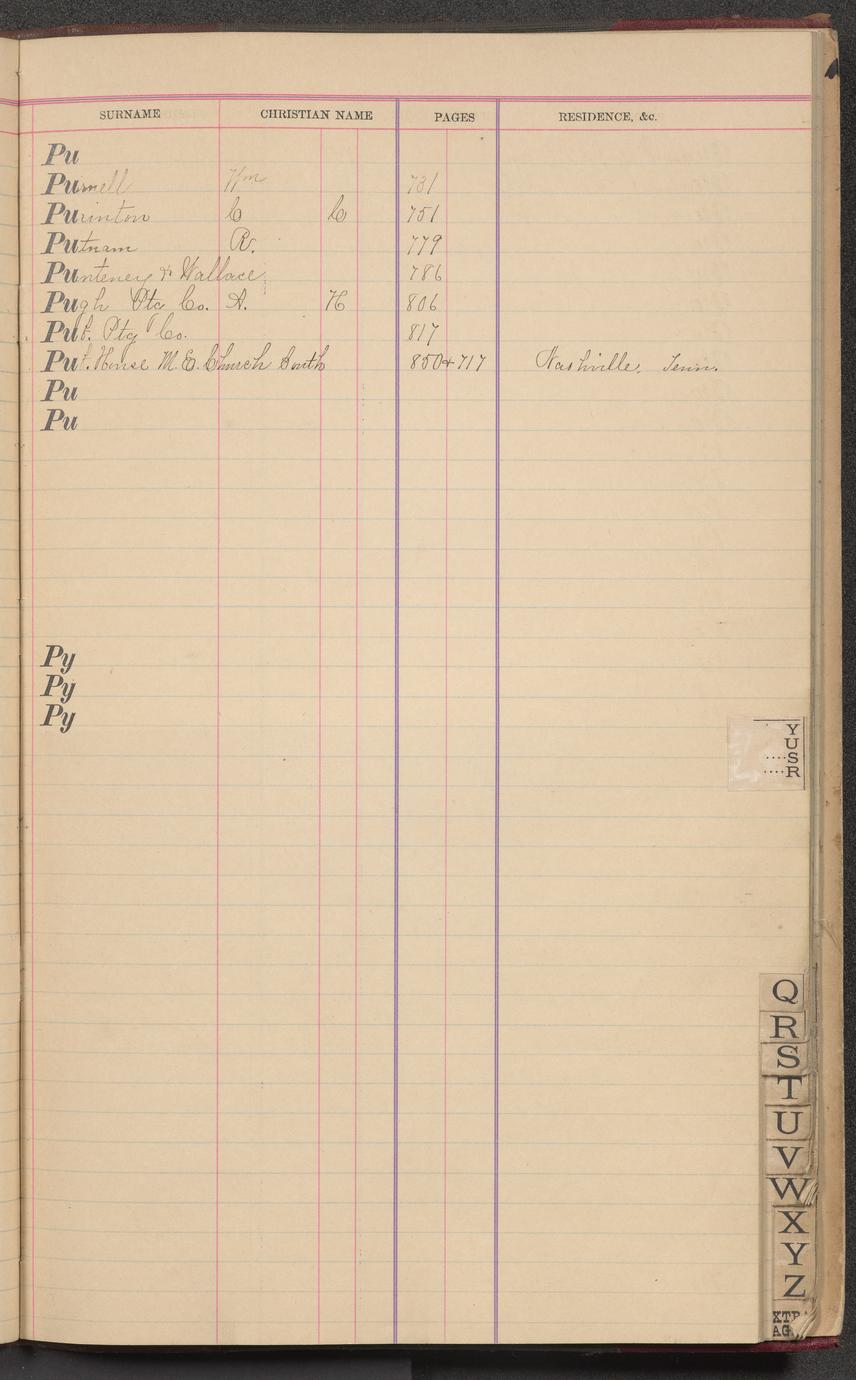 SURNAME CHRISTIAN NAME PAGES RESIDENCE, &c.
Pu
Purnell Wm 731
Purinton C C 751
Putnam R. 779
Punteney & Wallace 786
Pugh Ptg Co. A. H 806
Pub. Ptg Co. 817
Pub. House M. E. Church South 850 & 717 Nashville, Tenn.
Pu
Pu
Py
Py
Py
Y
U
....S
....R
Q
R
S
T
U
V
W
X
Y
Z
XTR
AG